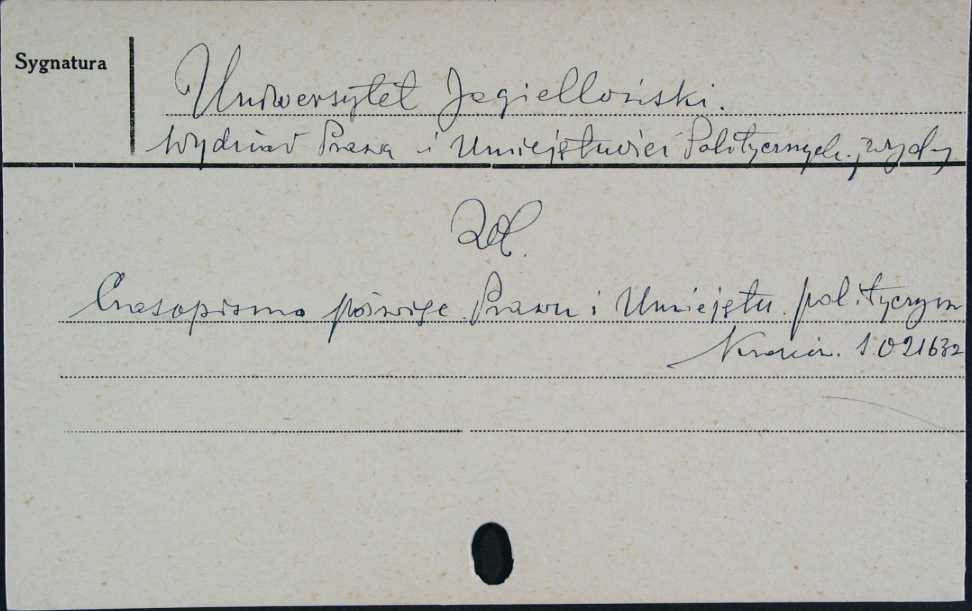 Sygnatura
Uniwersytet Jagielloński.
Wydział Prawa i Umiejętności Politycznych,
Zob.
Czasopismo poświęc. Prawu i Umiejętn. politycznym
1.021632